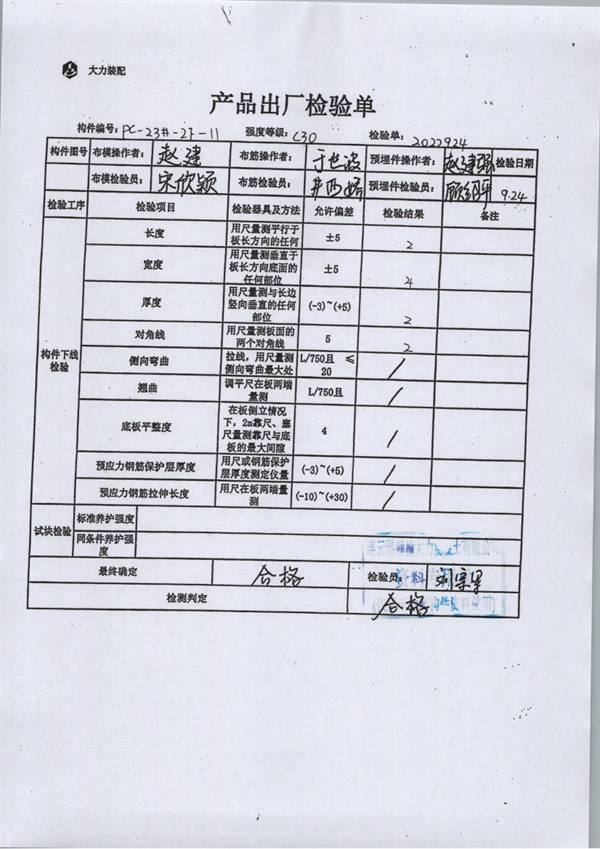 大力装配
产品出厂检验单
构件编号: PC-23#-2F-11 强度等级: C30 检验单: 2022924
构件图号 布模操作者: 赵建 布筋操作者: 于世波 预埋件操作者: 赵建强 检验日期
布模检验员: 宋欣颖 布筋检验员: 预埋件检验员: 9.24
检验工序 检验项目 检验器具及方法 允许偏差 检验结果 备注
构件下线检验
长度 用尺量测平行于板长方向的任何 ±5 2
宽度 用尺量测垂直于板长方向底面的任何部位 ±5 4
厚度 用尺量测与长边竖向垂直的任何部位 (-3)~(+5) 2
对角线 用尺量测板面的两个对角线 5 2
侧向弯曲 拉线,用尺量测侧向弯曲最大处 L/750且 ≤20 /
翘曲 调平尺在板两端量测 L/750且 /
底板平整度 在板侧立情况下,2m靠尺、塞尺量测靠尺与底板的最大间隙 4 /
预应力钢筋保护层厚度 用尺或钢筋保护层厚度测定仪量 (-3)~(+5) /
预应力钢筋拉伸长度 用尺在板两端量测 (-10)~(+30) /
试块检验 标准养护强度
同条件养护强度
最终确定 合格 检验员:
检测判定 合格